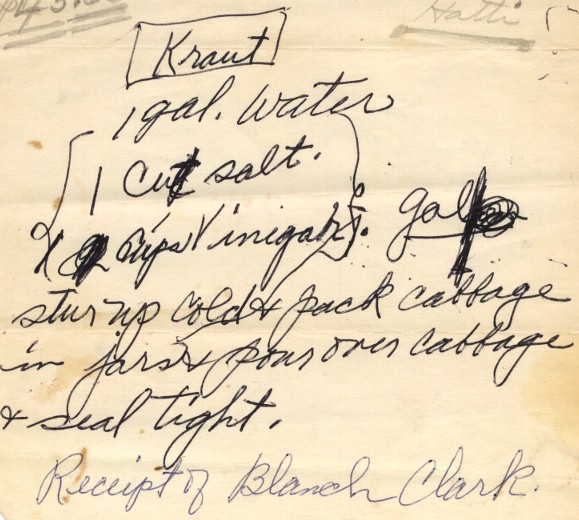 Hatti
Kraut
1 gal. water
1 cut salt.
cups Vinigar. gal
stur up cold & pack cabbage
in jars & pour over cabbage
& seal tight.
Receipt of Blanch Clark.